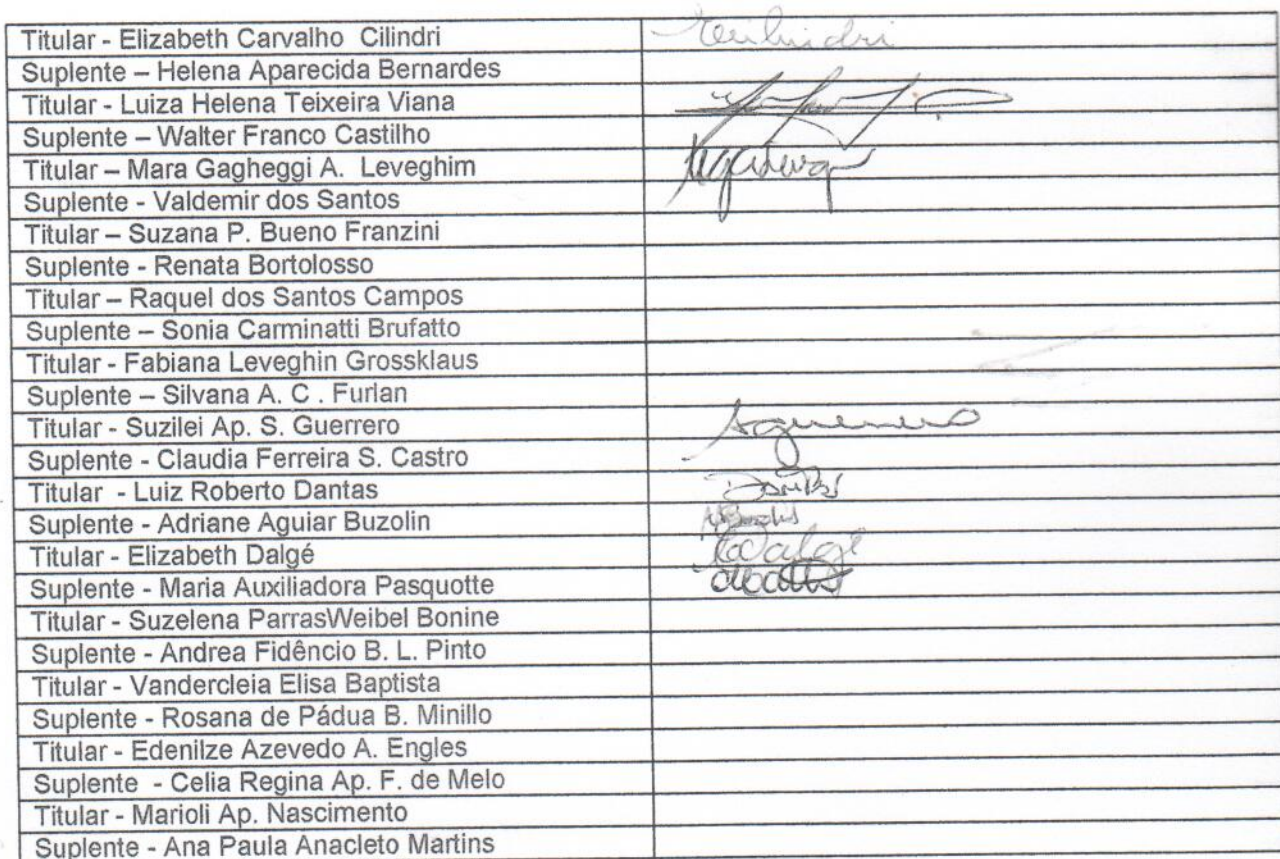 Titular - Elizabeth Carvalho Cilindri
Suplente – Helena Aparecida Bernardes
Titular - Luiza Helena Teixeira Viana
Suplente – Walter Franco Castilho
Titular – Mara Gagheggi A. Leveghim
Suplente - Valdemir dos Santos
Titular – Suzana P. Bueno Franzini
Suplente - Renata Bortolosso
Titular – Raquel dos Santos Campos
Suplente – Sonia Carminatti Brufatto
Titular - Fabiana Leveghin Grossklaus
Suplente – Silvana A. C . Furlan
Titular - Suzilei Ap. S. Guerrero
Suplente - Claudia Ferreira S. Castro
Titular - Luiz Roberto Dantas Dantas
Suplente - Adriane Aguiar Buzolin
Titular - Elizabeth Dalgé
Suplente - Maria Auxiliadora Pasquotte
Titular - Suzelena ParrasWeibel Bonine
Suplente - Andrea Fidêncio B. L. Pinto
Titular - Vandercleia Elisa Baptista
Suplente - Rosana de Pádua B. Minillo
Titular - Edenilze Azevedo A. Engles
Suplente - Celia Regina Ap. F. de Melo
Titular - Marioli Ap. Nascimento
Suplente - Ana Paula Anacleto Martins